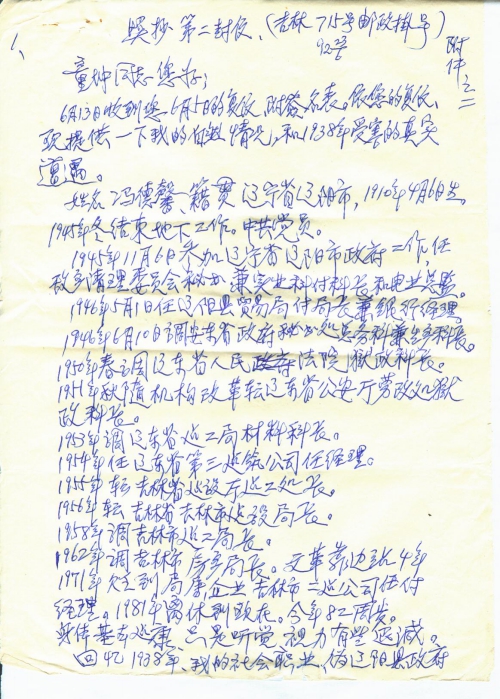 1、
照抄第二封信，（吉林715号邮政掛号）
附件之二
童坤同志您好；
6月13日收到您6月5日的复信，附签名表。依您的复信，
现提供一下我的自然情况，和1938年受害的真实
遭遇。
姓名冯德馨，籍贯辽宁省辽阳市，1910年4月6日生。
1945年冬结束地下工作。中共党员。
1945年11月6日参加辽宁省辽阳市政府工作，任
敌产清理委员会秘书兼实业科付科长和电业总监。
1946年5月1日任辽阳县贸易局付局长兼银行经理。
1946年6月10日调安东省政府秘书处总务科兼生产科长。
1950年春调辽东省人民法院獄政科长。
1951年秋随机构改革转辽东省公安厅劳改处獄
政科长。
1953年调辽东省边工局材料科长。
1954年任辽东省第三建筑公司任经理。
1955年转吉林省建设厅建工处长。
1956年转吉林省吉林市建设局长。
1958年调吉林市建工局长。
1962年调吉林市房产局长。文革靠边站4年
1971年欠到局属企业吉林市二建公司任付
经理。1981年离休到现在。今年82周岁。
身体基本健康，只是听觉视力有些退减。
回忆1938年，我的社会职业伪辽阳县政府